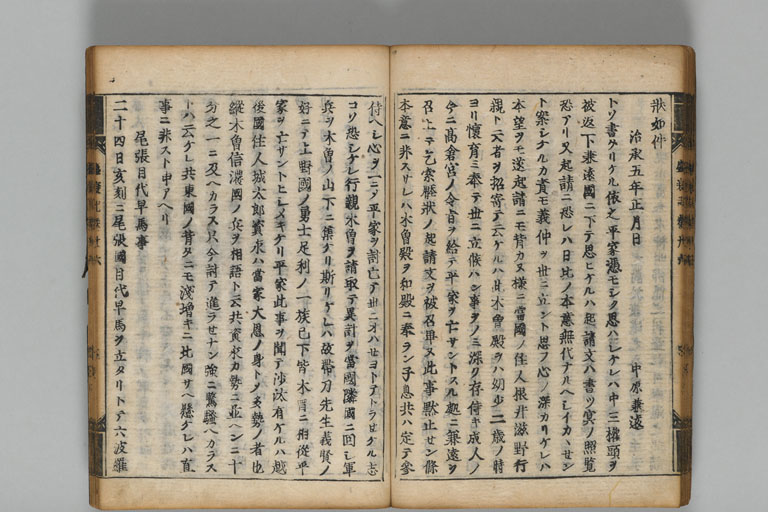 狀如件
治承五年正月日
中原兼遠
トソ書タリケル俵之平家憑モシク思ハレケレハ中三權頭ヲ
被返下兼遠國ニ下テ思ヒケルハ起請文ハ書ツ冥ノ照覧
恐アリ又起請ニ恐レハ日比ノ本意無代ナルヘシイカヽセン
ト案シケルカ責モ義仲ヲ世ニ立ント思フ心ノ深カリケレハ
本望ヲモ遂起請ニモ背カヌ様ニ當國ノ住人根井滋野行
親ト云者ヲ招寄テ云ケルハ此木曽殿ヲハ幼少二歳ノ時
ヨリ懐育ミ奉テ世ニ立候ハン事ヲノミ深ク存侍キ成人ノ
今ニ高倉宮ノ令旨ヲ給テ平家ヲ亡サントスル處ニ兼遠ヲ
召上テ乞索壓狀ノ起請文ヲ被召畢又此事黙止セン條
本意ニ非スサレハ木曽殿ヲ和殿ニ奉ラン子息共ハ定テ參
侍ヘシ心ヲ一ニシテ平家ヲ討亡テ世ニオハセヨトテトラセケル志
コソ恐シケレ行親木曽ヲ請取テ異計ヲ當國隣國ニ回シ軍
兵ヲ木曽ノ山下ニ集ケリ斯リケレハ故帶刀先生義賢ノ
好ニテ上野國ノ勇士足利ノ一族已下皆木曽ニ相從平
家ヲ亡サントヒシメキケリ平家此事ヲ聞テ沙汰有ケルハ越
後國住人城太郎資永ハ當家大恩ノ身トシテ多勢ノ者也
縱木曽信濃國ノ兵ヲ相語ト云共資永カ勢ニ並ヘンニ十
分之一ニ及ヘカラス只今討テ進ラセナン強ニ驚騒ヘカラス
トハ云ケレ共東國ノ背タニモ淺增キニ北國サヘ懸ケレハ直
事ニ非スト申アヘリ
尾張目代早馬事
二十四日亥刻ニ尾張國目代早馬ヲ立タリトテ六波羅